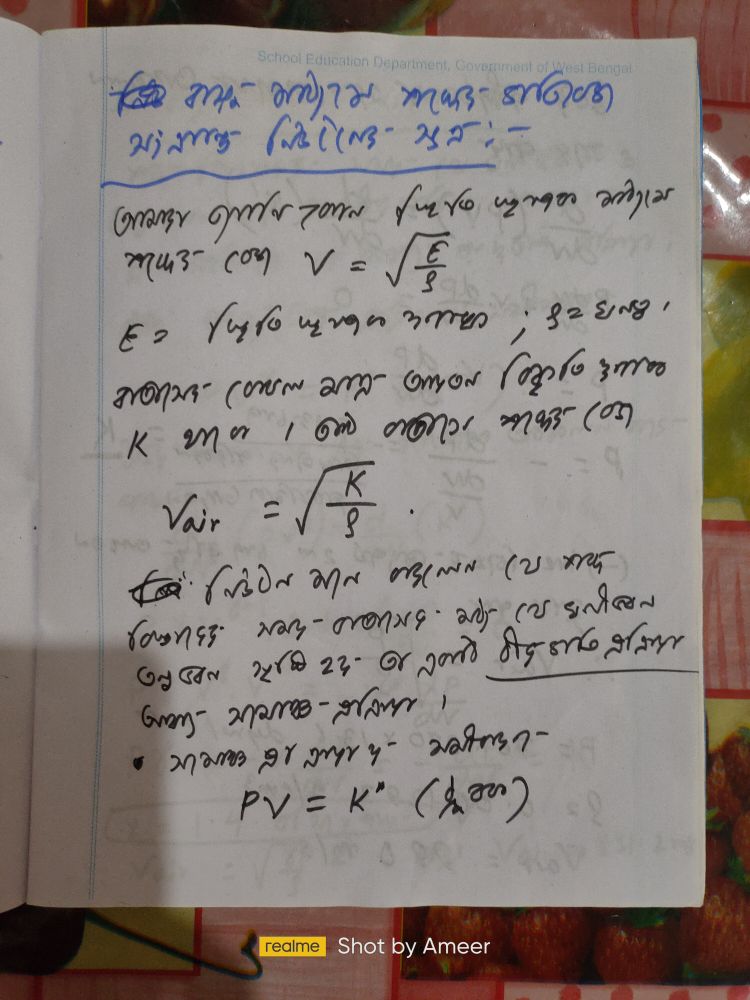 School Education Department, Government of West Bengal
বায়ু মাধ্যমে শব্দের গতিবেগ
সংক্রান্ত নিউটনের সূত্র :-
আমরা জানি কোন স্থিতিস্থাপক মাধ্যমে
শব্দের বেগ V = √(E/ρ)
E = স্থিতিস্থাপক গুণাঙ্ক ; ρ = ঘনত্ব ।
বাতাসের কেবল মাত্র আয়তন বিকৃতি গুণাঙ্ক
K থাকে । তাই বাতাসে শব্দের বেগ
Vair = √(K/ρ) .
নিউটন মনে করলেন যে শব্দ
বিস্তারের সময় বাতাসের মধ্যে যে ঘনীভবন
তনুভবন সৃষ্টি হয় তা একটি ধীর গতি প্রক্রিয়া
অর্থাৎ সমোষ্ণ প্রক্রিয়া ।
• সমোষ্ণ প্রক্রিয়ার সমীকরণ
PV = K" (ধ্রুবক)
realme Shot by Ameer